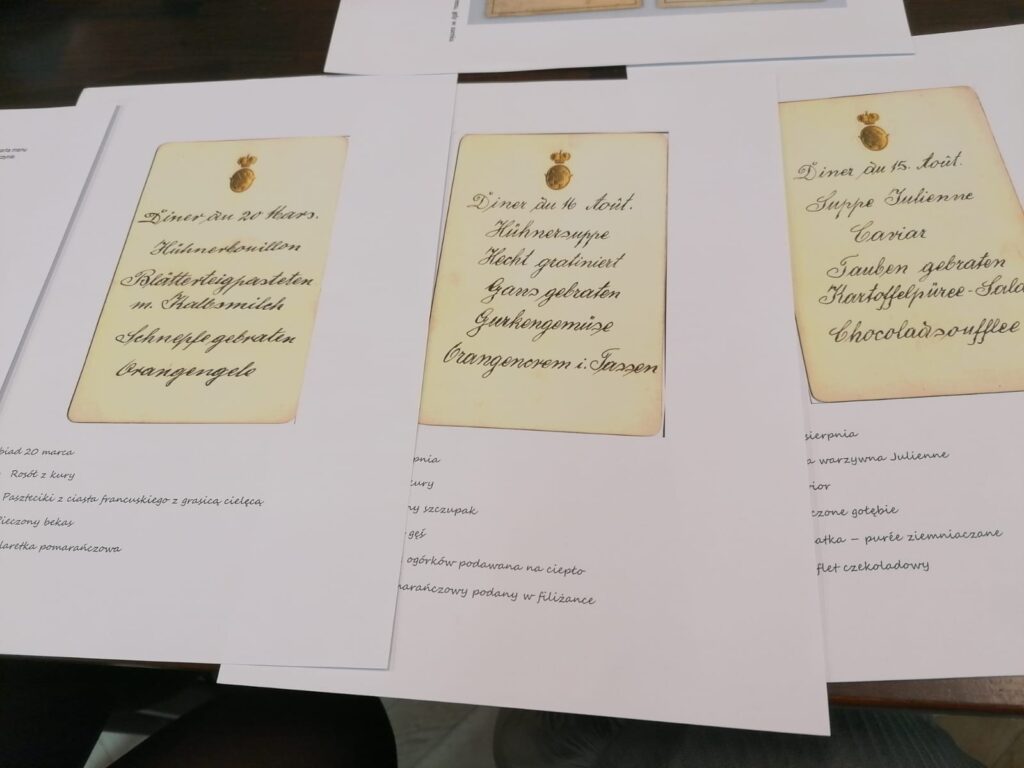 karta menu
Diner du 20 Mars.
Hühnerbouillon
Blätterteigpasteten
m. Kalbsmilch
Schnepfe gebraten
Orangengele
biad 20 marca
Rosół z kury
Paszteciki z ciasta francuskiego z grasicą cielęcą
Pieczony bekas
laretka pomarańczowa
Diner du 16 Août.
Hühnersuppe
Hecht gratiniert
Gans gebraten
Gurkengemüse
Orangencrem i. Tassen
pnia
kury
ny szczupak
gęś
ogórków podawana na ciepło
marańczowy podany w filiżance
Diner du 15. Août.
Suppe Julienne
Caviar
Tauben gebraten
Kartoffelpüree-Sala
Chocoladsoufflee
sierpnia
a warzywna Julienne
ior
czone gołębie
atka – purée ziemniaczane
flet czekoladowy